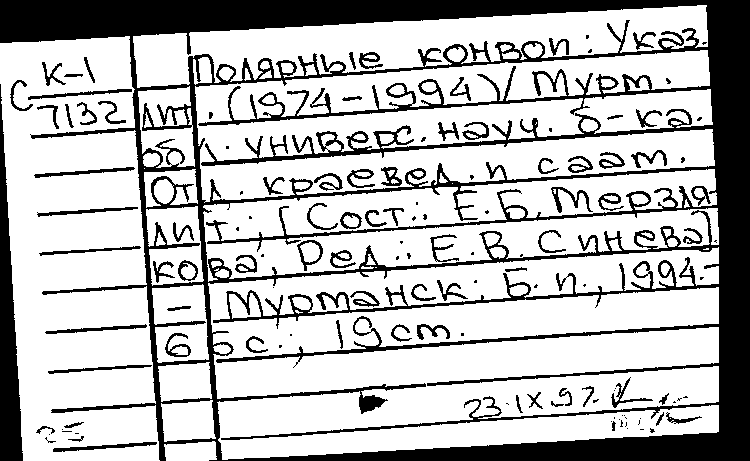 К-1
С 7132
Полярные конвои: Указ.
лит. (1974-1994)/ Мурм.
обл. универс. науч. б-ка.
Отд. краевед. и саам.
лит.; [Сост.: Е.Б. Мерзля-
кова; Ред.: Е.В. Синева].
– Мурманск: Б.и., 1994.-
66 с.; 19 см.
23.IX.97.
25